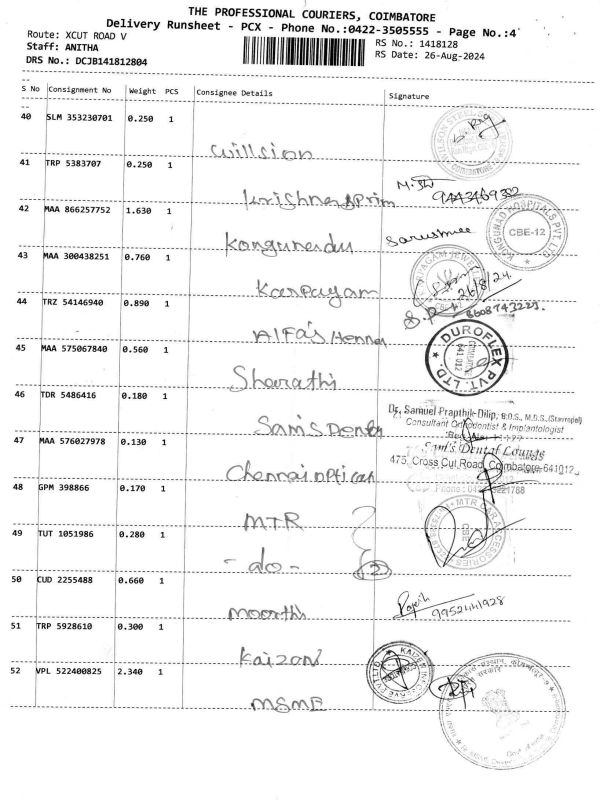 THE PROFESSIONAL COURIERS, COIMBATORE
Delivery Runsheet - PCX - Phone No.:0422-3505555 - Page No.:4
Route: XCUT ROAD V
RS No.: 1418128
Staff: ANITHA
RS Date: 26-Aug-2024
DRS No.: DCJB141812804
S No Consignment No Weight PCS Consignee Details Signature
40 SLM 353230701 0.250 1
Willsion
41 TRP 5383707 0.250 1
9443469382
42 MAA 866257752 1.630 1
KONGUNAD HOSPITALS PVT. LTD
CBE-12
43 MAA 300438251 0.760 1
Karpayam
26/8/24.
44 TRZ 54146940 0.890 1
8608743223.
Alfa's Henna
45 MAA 575067840 0.560 1
DUROFLEX PVT. LTD.
COIMBATORE
641 012
Sharathi
46 TDR 5486416 0.180 1
Dr. Samuel Prapthik Dilip, B.D.S., M.D.S.,
Consultant Orthodontist & Implantologist
Sam's Dental
47 MAA 576027978 0.130 1
Sam's Dental Lounge
475, Cross Cut Road, Coimbatore-641012
Chennai optical
48 GPM 398866 0.170 1
MTR
MTR CAR ACCESSORIES
49 TUT 1051986 0.280 1
-do- 2
50 CUD 2255488 0.660 1
Rajesh
9952441928
Moorthi
51 TRP 5928610 0.300 1
Kaizon
52 VPL 522400825 2.340 1
MSME
Govt. of India